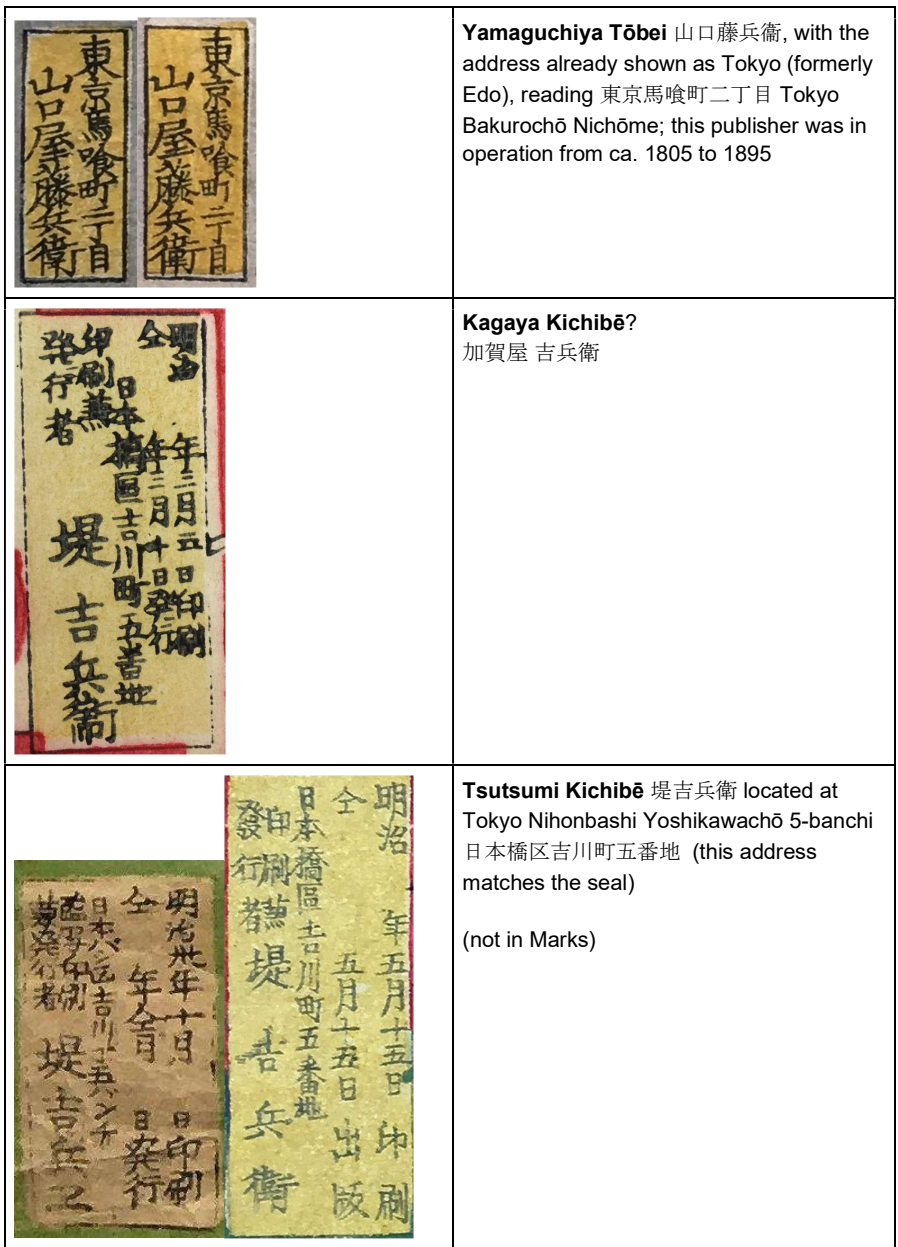 東京馬喰町二丁目
山口屋藤兵衛
東京馬喰町二丁目
山口屋藤兵衛
Yamaguchiya Tōbei 山口藤兵衞, with the
address already shown as Tokyo (formerly
Edo), reading 東京馬喰町二丁目 Tokyo
Bakurochō Nichōme; this publisher was in
operation from ca. 1805 to 1895
明治 年三月五日印刷
仝 年三月十日発行
日本橋區吉川町五番地
印刷兼
発行者
堤吉兵衛
Kagaya Kichibē?
加賀屋 吉兵衛
明治卅年十月 日印刷
仝 年仝月 日発行
日本バシ区吉川丁五バンチ
印刷
兼発行者
堤吉兵ヱ
明治 年五月十五日印刷
仝 五月十五日出版
日本橋區吉川町五番地
印刷兼
發行者 堤吉兵衛
Tsutsumi Kichibē 堤吉兵衛 located at
Tokyo Nihonbashi Yoshikawachō 5-banchi
日本橋区吉川町五番地 (this address
matches the seal)
(not in Marks)